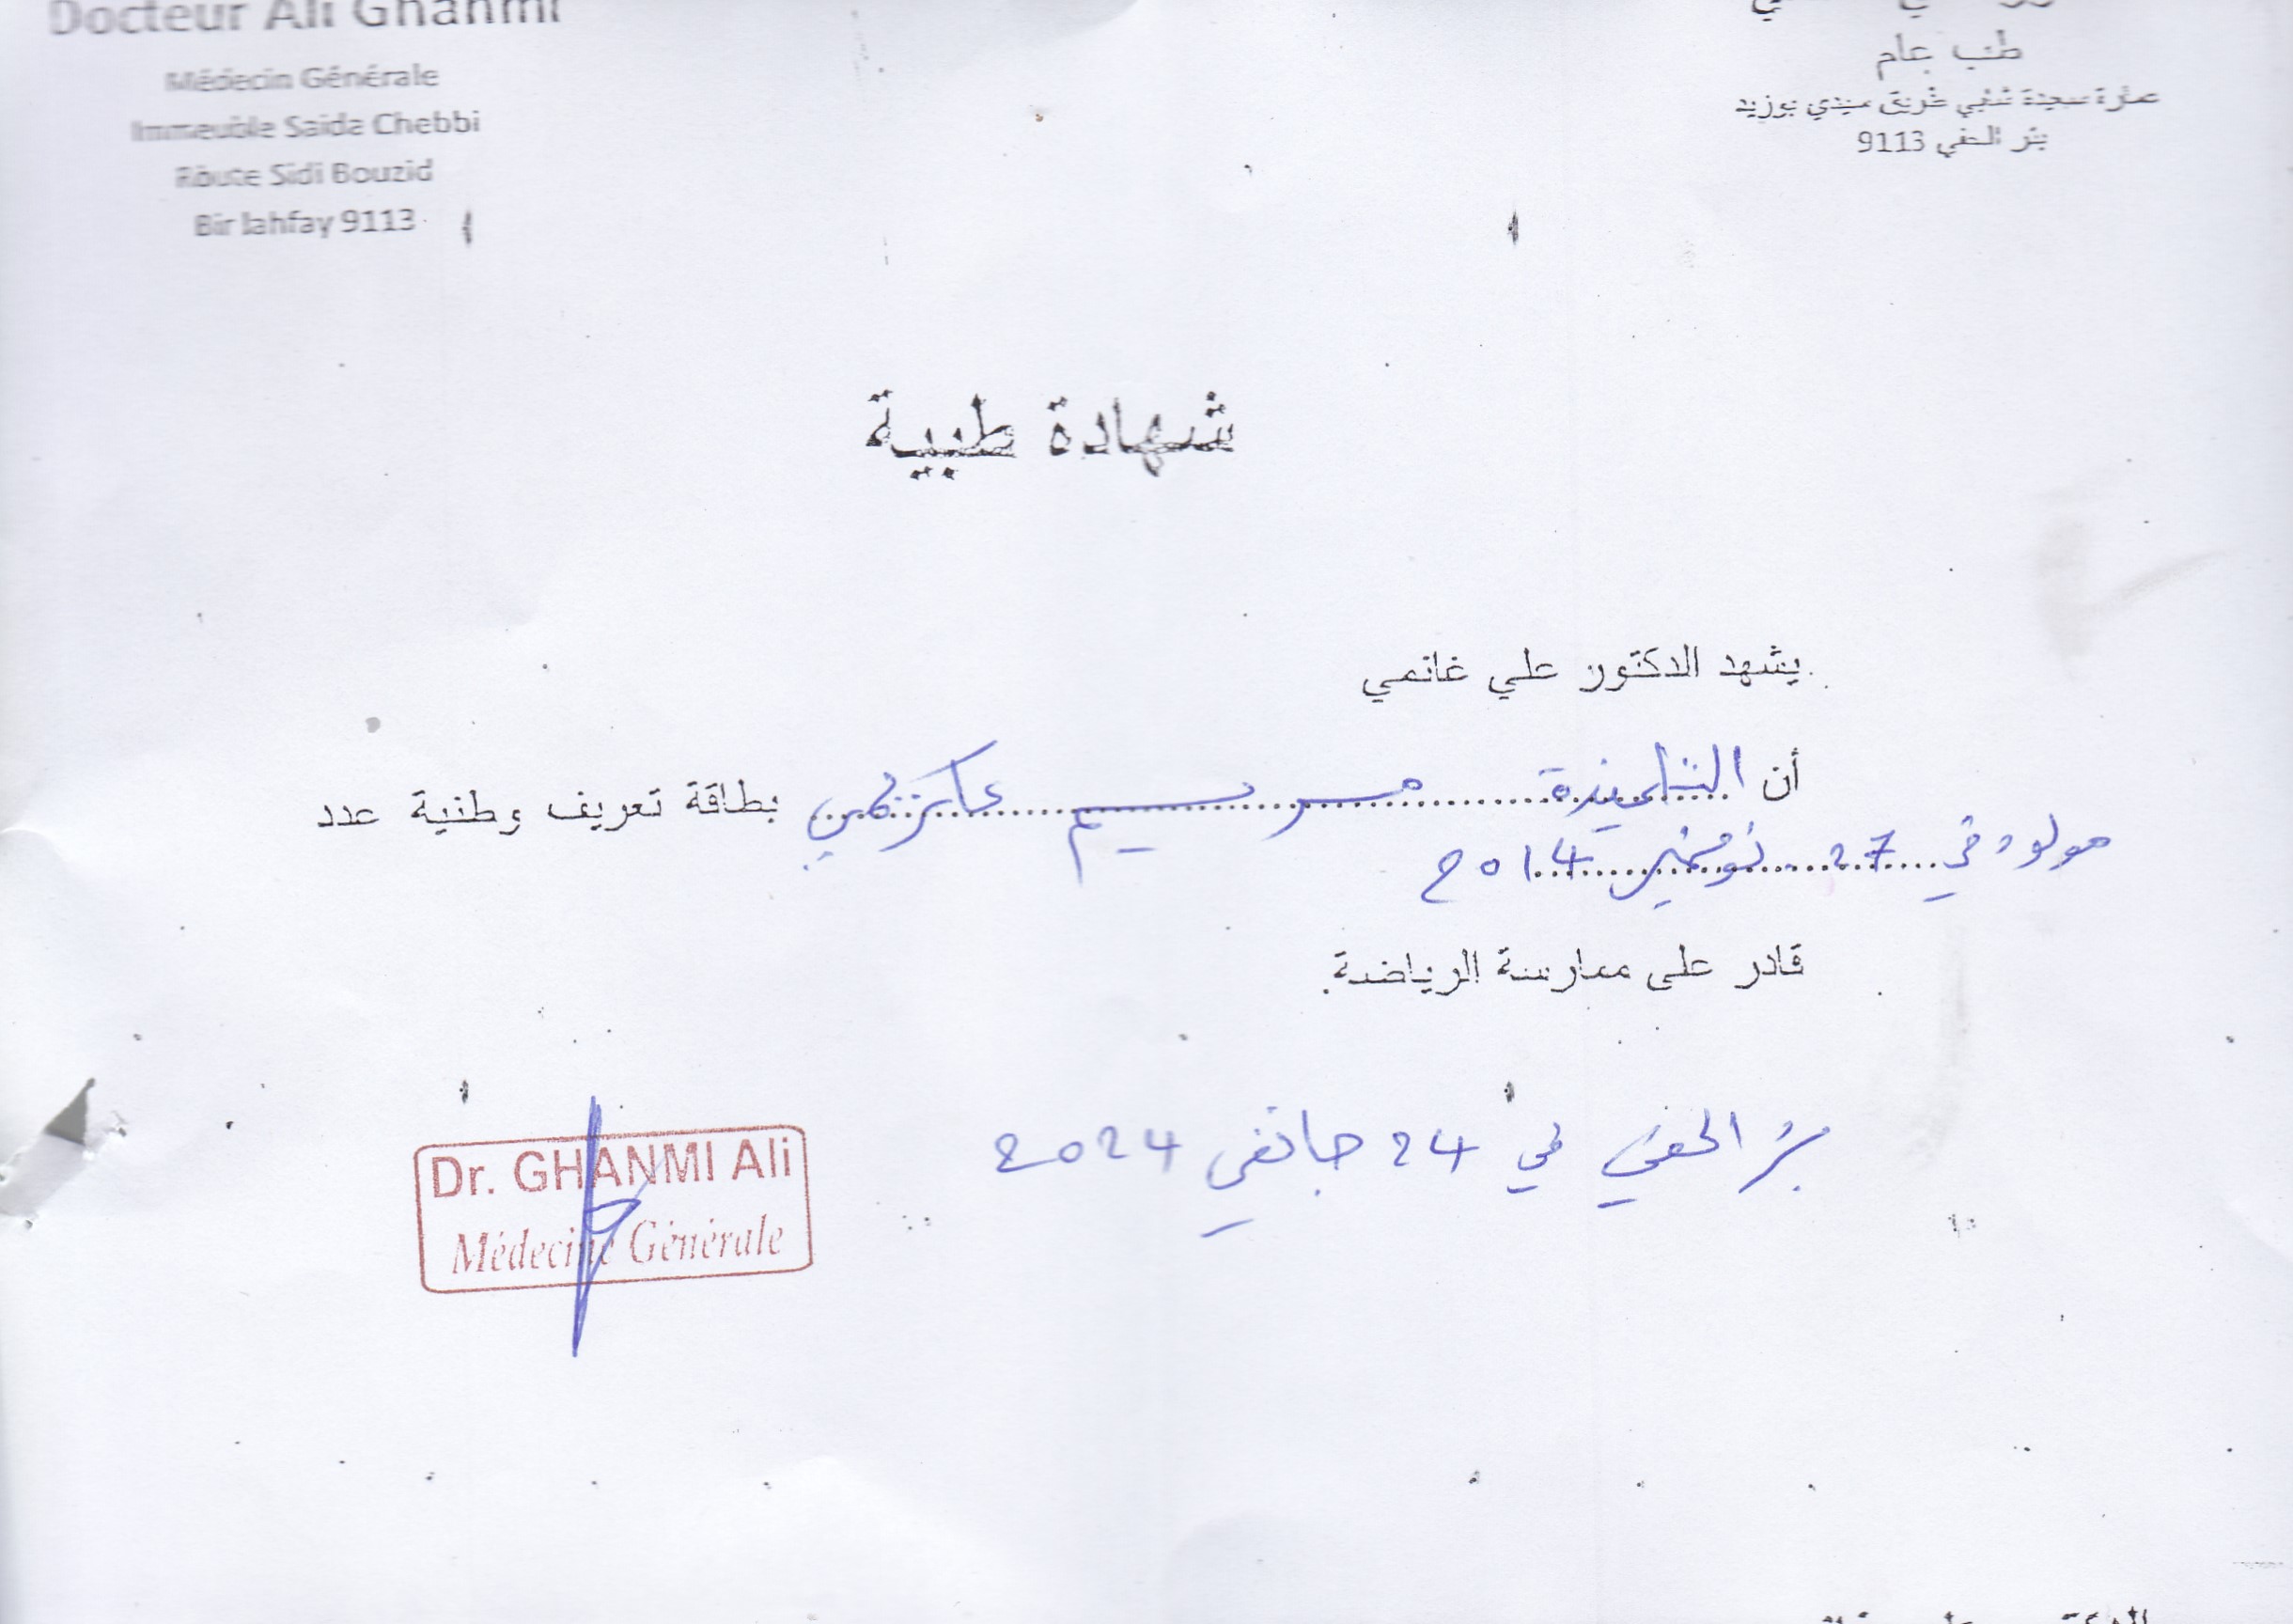 Docteur Ali Ghanmi
Médecin Générale
Immeuble Saida Chebbi
Route Sidi Bouzid
Bir lahfay 9113
طب عام
عمارة سعيدة شابي طريق سيدي بوزيد
بئر الحفي 9113
شهادة طبية
يشهد الدكتور علي غانمي
أن التلميذة مريم بطاقة تعريف وطنية عدد
مولود في 27 نوفمبر 2014
قادر على ممارسة الرياضة.
بئر الحفي في 24 جانفي 2024
Dr. GHANMI Ali
Médecine Générale